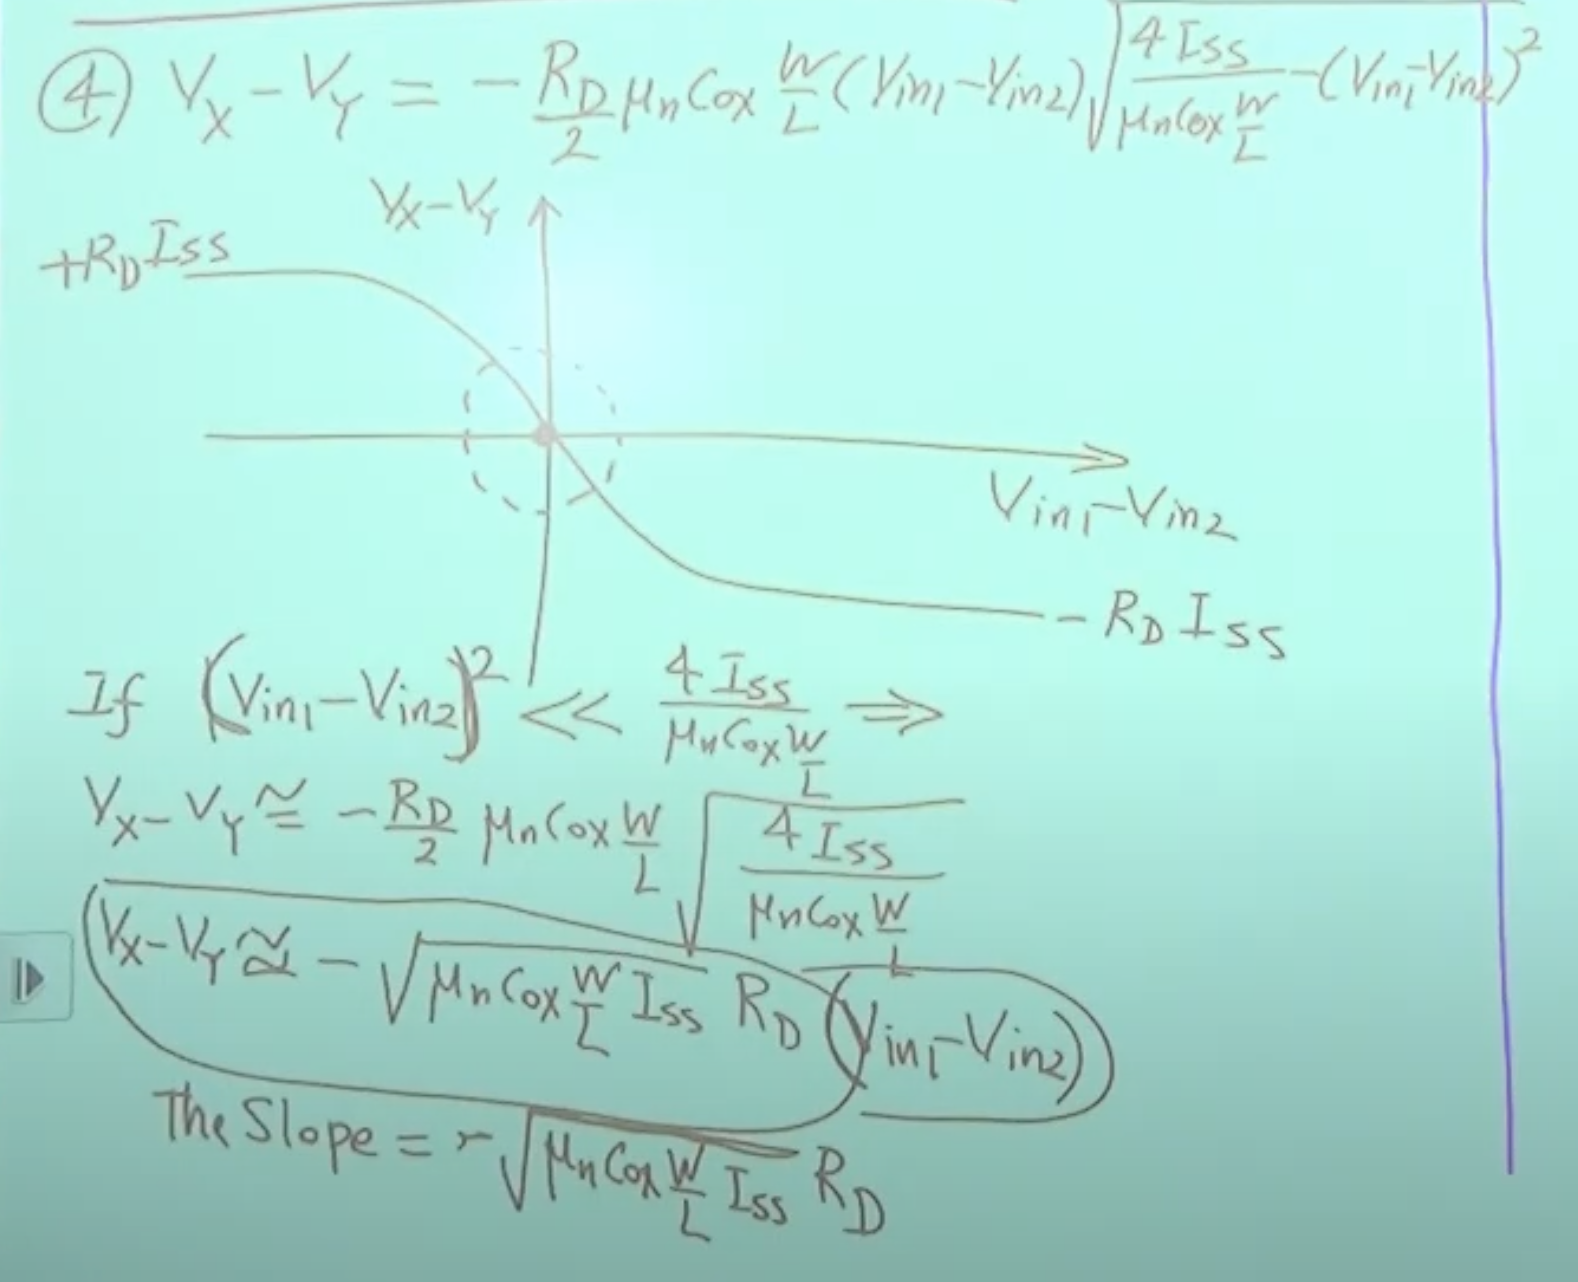 ④ Vx - VY = - RD/2 μn Cox W/L (Vin1 - Vin2) √(4 ISS / μn Cox W/L - (Vin1 - Vin2)²)
Vx - VY
+RD ISS
Vin1 - Vin2
- RD ISS
If (Vin1 - Vin2)² << 4 ISS / μn Cox W/L ⇒
Vx - VY ≅ - RD/2 μn Cox W/L √(4 ISS / μn Cox W/L)
Vx - VY ≅ - √(μn Cox W/L ISS) RD (Vin1 - Vin2)
The Slope = - √(μn Cox W/L ISS) RD